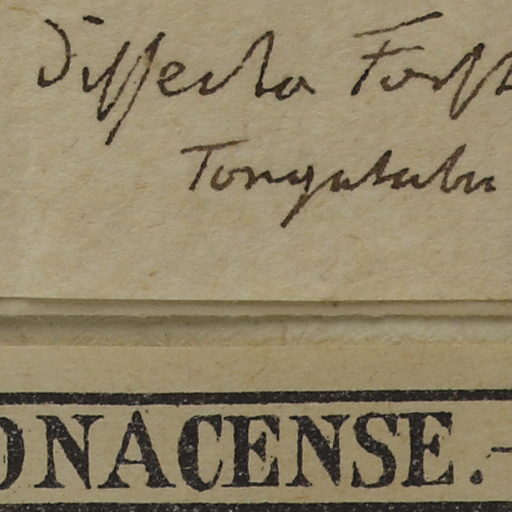 Dissecta Forst
Tongatabu
ONACENSE.-